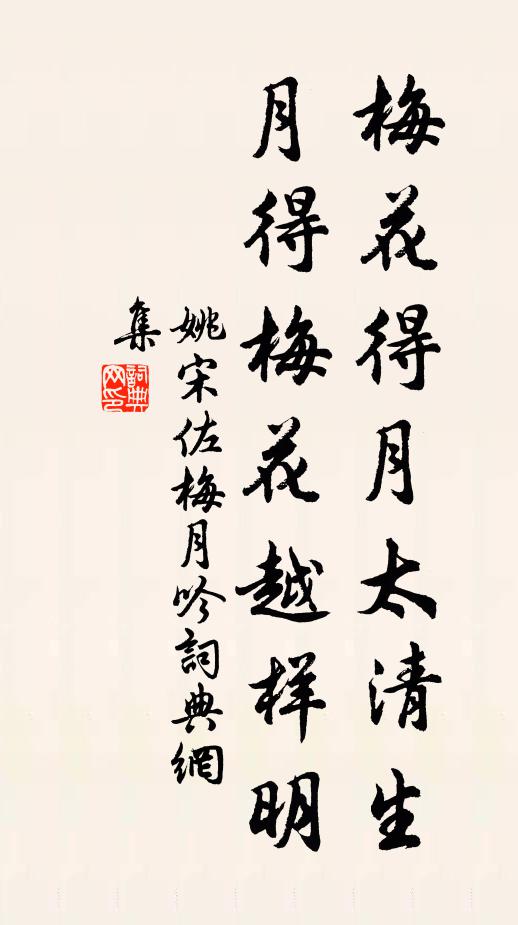 梅花得月太清生
月得梅花越样明
姚宋佐梅月吟詞典網
集
詞典网印